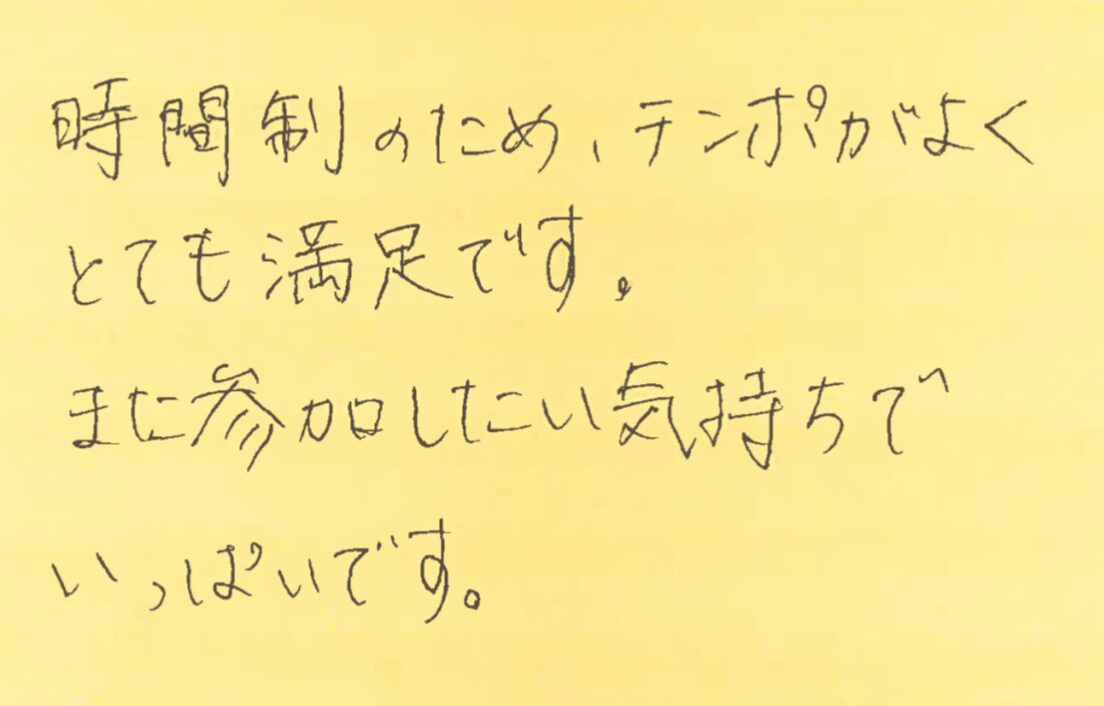 時間制のため、テンポがよく
とても満足です。
また参加したい気持ちで
いっぱいです。